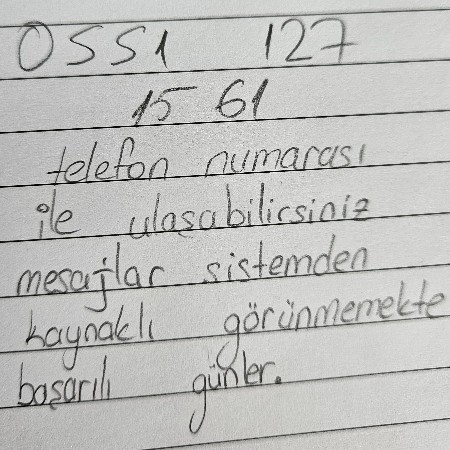 0551 127
15 61
telefon numarası
ile ulaşabilirsiniz
mesajlar sistemden
kaynaklı görünmemekte
başarılı günler.